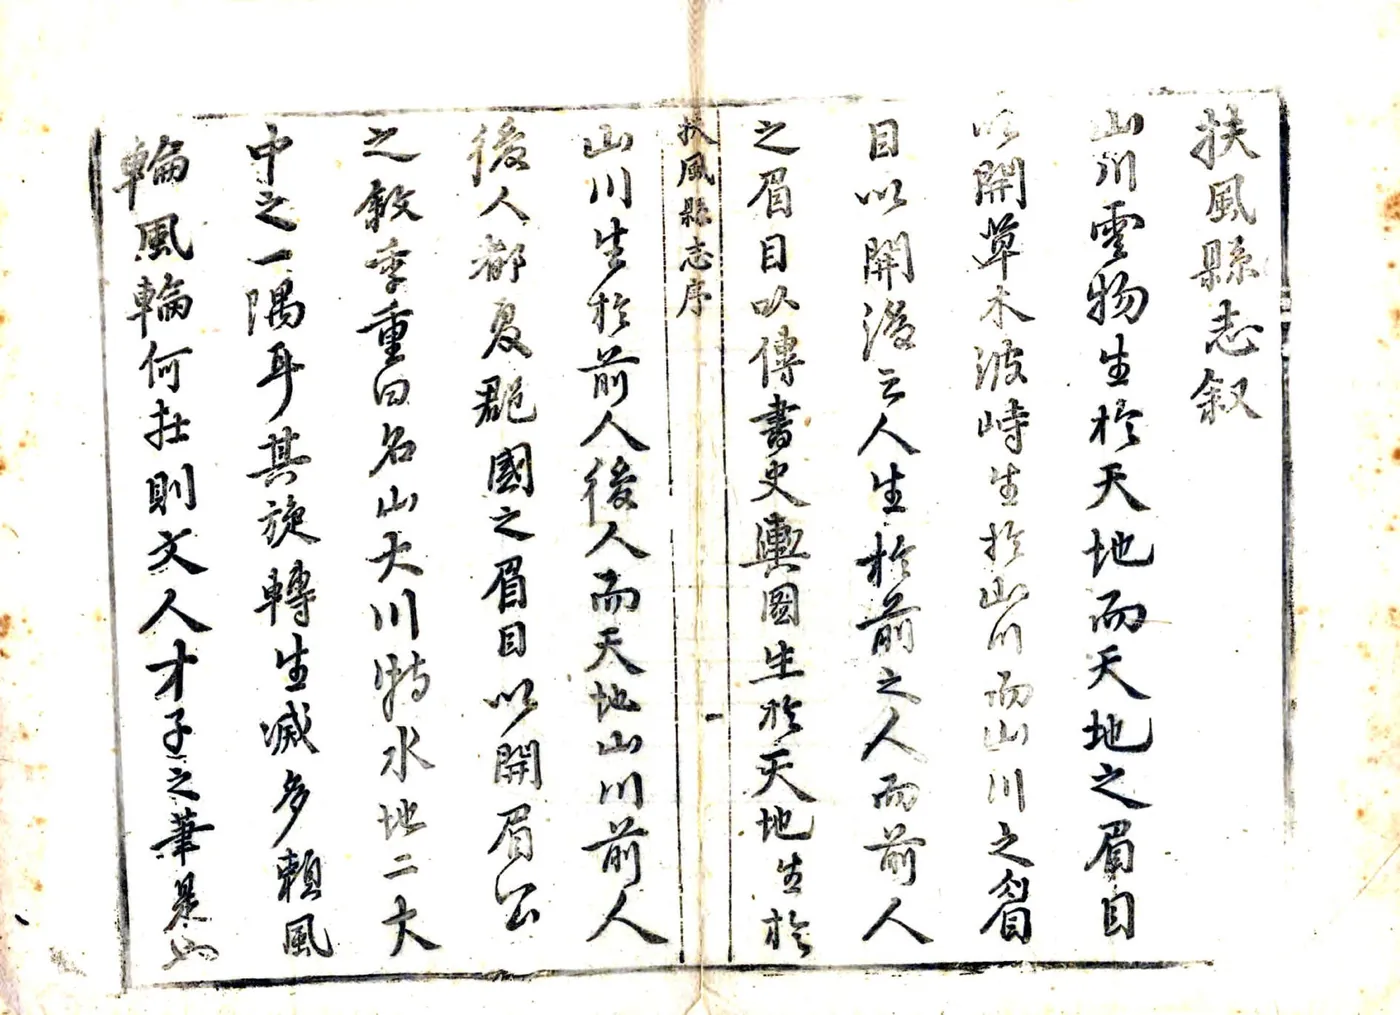 扶風縣志叙
山川雲物生於天地而天地之眉目
以開草木波峙生於山川而山川之眉
目以開後之人生於前之人而前人
之眉目以傳書史輿圖生於天地生於
扶風縣志序
一
山川生於前人後人而天地山川前人
後人都夏郡國之眉目以開眉公
之敘季重曰名山大川特水地二大
中之一隅耳其旋轉生滅多賴風
輪風輪何在則文人才子之筆是也